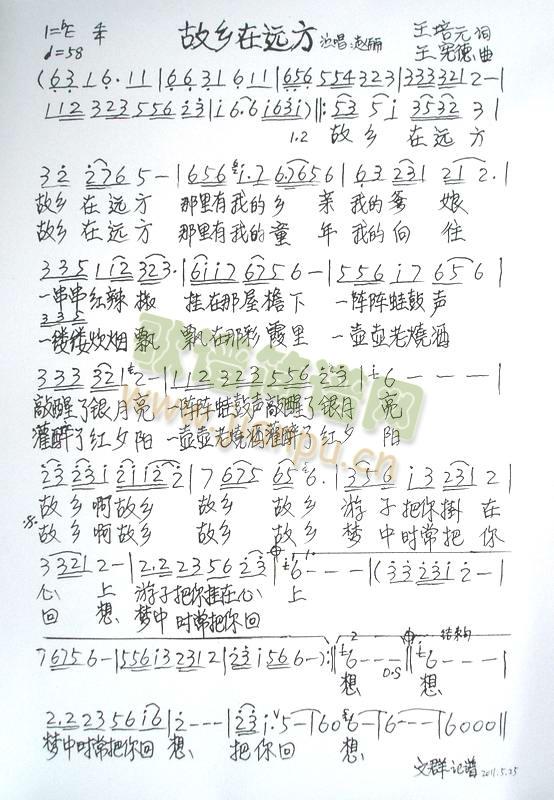 故乡在远方 演唱:赵丽
王培元 词
王宪德 曲
1=♭E
♩=58
(6 3 1 6· 1 1 | 6 6 3 1 6 1 1 | 6 5 6 5 5 4 3 2 3 | 3 3 3 3 2 1 2 - |
1 1 2 3 2 3 5 5 6 2 3 | i 6· 6 i 6 3 i) ‖: 5 3 5 i 3 5 3 2 3 |
1.2 故乡 在远方
3 2 2 7 6 5 - | 6 5 6 i· 7 6·7 6 5 6 | 6 3 2 3 1 2 1 2· |
故乡 在远方 那里有我的乡 亲 我的爹 娘
故乡 在远方 那里有我的童 年 我的向 往
3 3 5 1 1 2 3 2 3· | 6 i i 7 6 7 5 6 - | 5 5 6 i 7 6 5 6 |
一串串红辣 椒 挂在那屋檐下 一阵阵蛙鼓声
3 3 5
一缕缕炊烟飘 飘在那彩霞里 一壶壶老烧酒
3 3 3 3 2 1 2 - | 1 1 2 3 2 3 5 5 6 2 3 | 6 - - - |
敲醒了银月亮 一阵阵蛙鼓声敲醒了银月 亮
灌醉了红夕阳 一壶壶老烧酒灌醉了红夕 阳
2 3 2 3 i 2 i i 2 2 | 7 6 7 5 6 5 6· | 3 5 6 i 3 2 3 1 2 |
故乡 啊故乡 故乡 故乡 游子把你掛在
故乡 啊故乡 故乡 故乡 梦中时常把你
3 3 2 1 2 - | 2·2 2 3 5 6 2 3 | 6 - - - | (3 3 2 3 i 2 - |
心 上 游子把你挂在心 上
回 想 梦中时常把你回
7 6 7 5 6 - | 5 5 6 i 3 2 3 1 2 | 2 3 i 5 6 6 -) :‖ 6 - - - ‖ 6 - - - |
2 结构
想 D.S 想
2·2 2 3 5 6 i 6 | 2 - - - | 2 3 i· 5 - | 6 0 6 - | 6 - - - | 6 0 0 0 ‖
梦中时常把你回 想 把你回 想
文群记谱 2011.5.25
歌谱简谱网
www.jianpu.cn